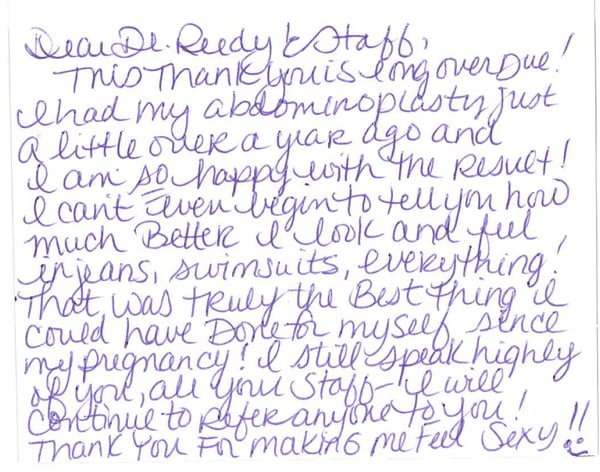 Dear Dr. Reedy & Staff,
This Thank you is long over Due!
I had my abdominoplasty just
a little over a year ago and
I am so happy with the Result!
I can't even begin to tell you how
much Better I look and feel
in jeans, swimsuits, everything!
That was truly the Best Thing I
could have Done for myself since
my pregnancy! I still speak highly
of you, all your Staff - I will
continue to Refer anyone to you!
Thank You For making me Feel Sexy!!